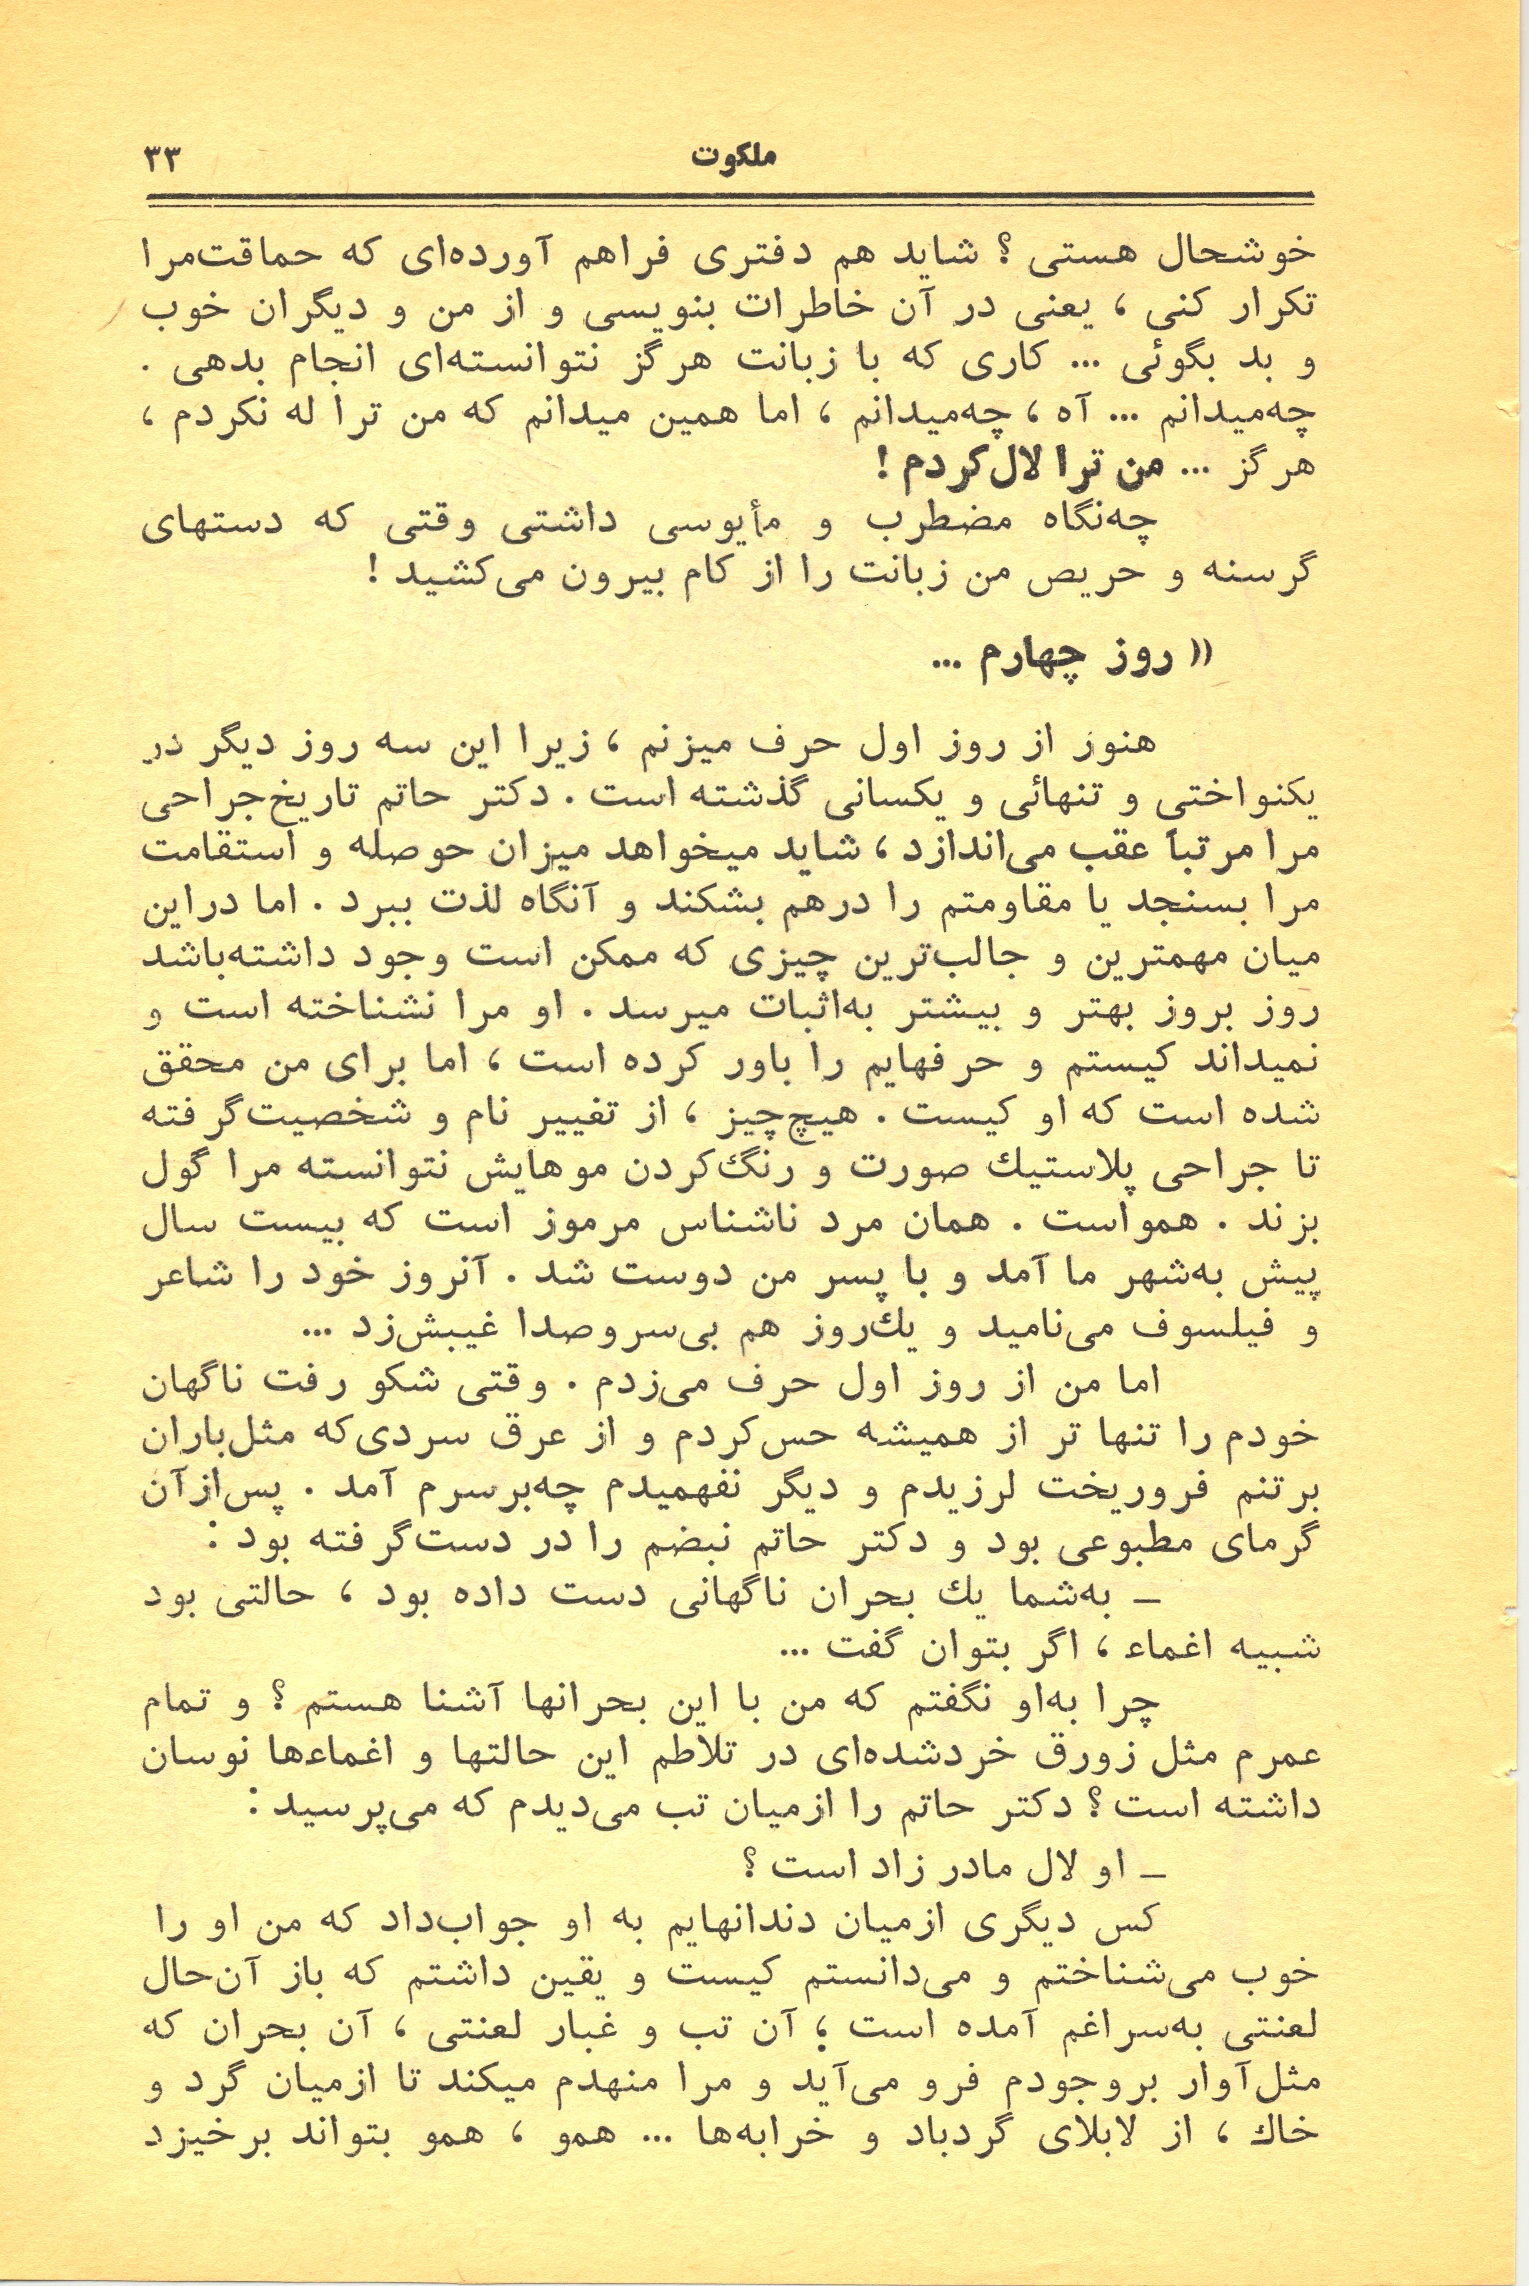 ملکوت
۳۳
خوشحال هستی ؟ شاید هم دفتری فراهم آورده‌ای که حماقت‌مرا
تکرار کنی ، یعنی در آن خاطرات بنویسی و از من و دیگران خوب
و بد بگوئی ... کاری که با زبانت هرگز نتوانسته‌ای انجام بدهی .
چه‌میدانم ... آه ، چه‌میدانم ، اما همین میدانم که من ترا له نکردم ،
هرگز ... من ترا لال‌کردم !
چه‌نگاه مضطرب و مأیوسی داشتی وقتی که دستهای
گرسنه و حریص من زبانت را از کام بیرون می‌کشید !
« روز چهارم ...
هنوز از روز اول حرف میزنم ، زیرا این سه روز دیگر در
یکنواختی و تنهائی و یکسانی گذشته است . دکتر حاتم تاریخ‌جراحی
مرا مرتباً عقب می‌اندازد ، شاید میخواهد میزان حوصله و استقامت
مرا بسنجد یا مقاومتم را درهم بشکند و آنگاه لذت ببرد . اما دراین
میان مهمترین و جالب‌ترین چیزی که ممکن است وجود داشته‌باشد
روز بروز بهتر و بیشتر به‌اثبات میرسد . او مرا نشناخته است و
نمیداند کیستم و حرفهایم را باور کرده است ، اما برای من محقق
شده است که او کیست . هیچ‌چیز ، از تغییر نام و شخصیت‌گرفته
تا جراحی پلاستیك صورت و رنگ‌کردن موهایش نتوانسته مرا گول
بزند . همواست . همان مرد ناشناس مرموز است که بیست سال
پیش به‌شهر ما آمد و با پسر من دوست شد . آنروز خود را شاعر
و فیلسوف می‌نامید و یك‌روز هم بی‌سروصدا غیبش‌زد ...
اما من از روز اول حرف می‌زدم . وقتی شکو رفت ناگهان
خودم را تنها تر از همیشه حس‌کردم و از عرق سردی‌که مثل‌باران
برتنم فروریخت لرزیدم و دیگر نفهمیدم چه‌برسرم آمد . پس‌ازآن
گرمای مطبوعی بود و دکتر حاتم نبضم را در دست‌گرفته بود :
ـ به‌شما یك بحران ناگهانی دست داده بود ، حالتی بود
شبیه اغماء ، اگر بتوان گفت ...
چرا به‌او نگفتم که من با این بحرانها آشنا هستم ؟ و تمام
عمرم مثل زورق خردشده‌ای در تلاطم این حالتها و اغماءها نوسان
داشته است ؟ دکتر حاتم را ازمیان تب می‌دیدم که می‌پرسید :
ـ او لال مادر زاد است ؟
کس دیگری ازمیان دندانهایم به او جواب‌داد که من او را
خوب می‌شناختم و می‌دانستم کیست و یقین داشتم که باز آن‌حال
لعنتی به‌سراغم آمده است ؛ آن تب و غبار لعنتی ، آن بحران که
مثل‌آوار بروجودم فرو می‌آید و مرا منهدم میکند تا ازمیان گرد و
خاك ، از لابلای گردباد و خرابه‌ها ... همو ، همو بتواند برخیزد